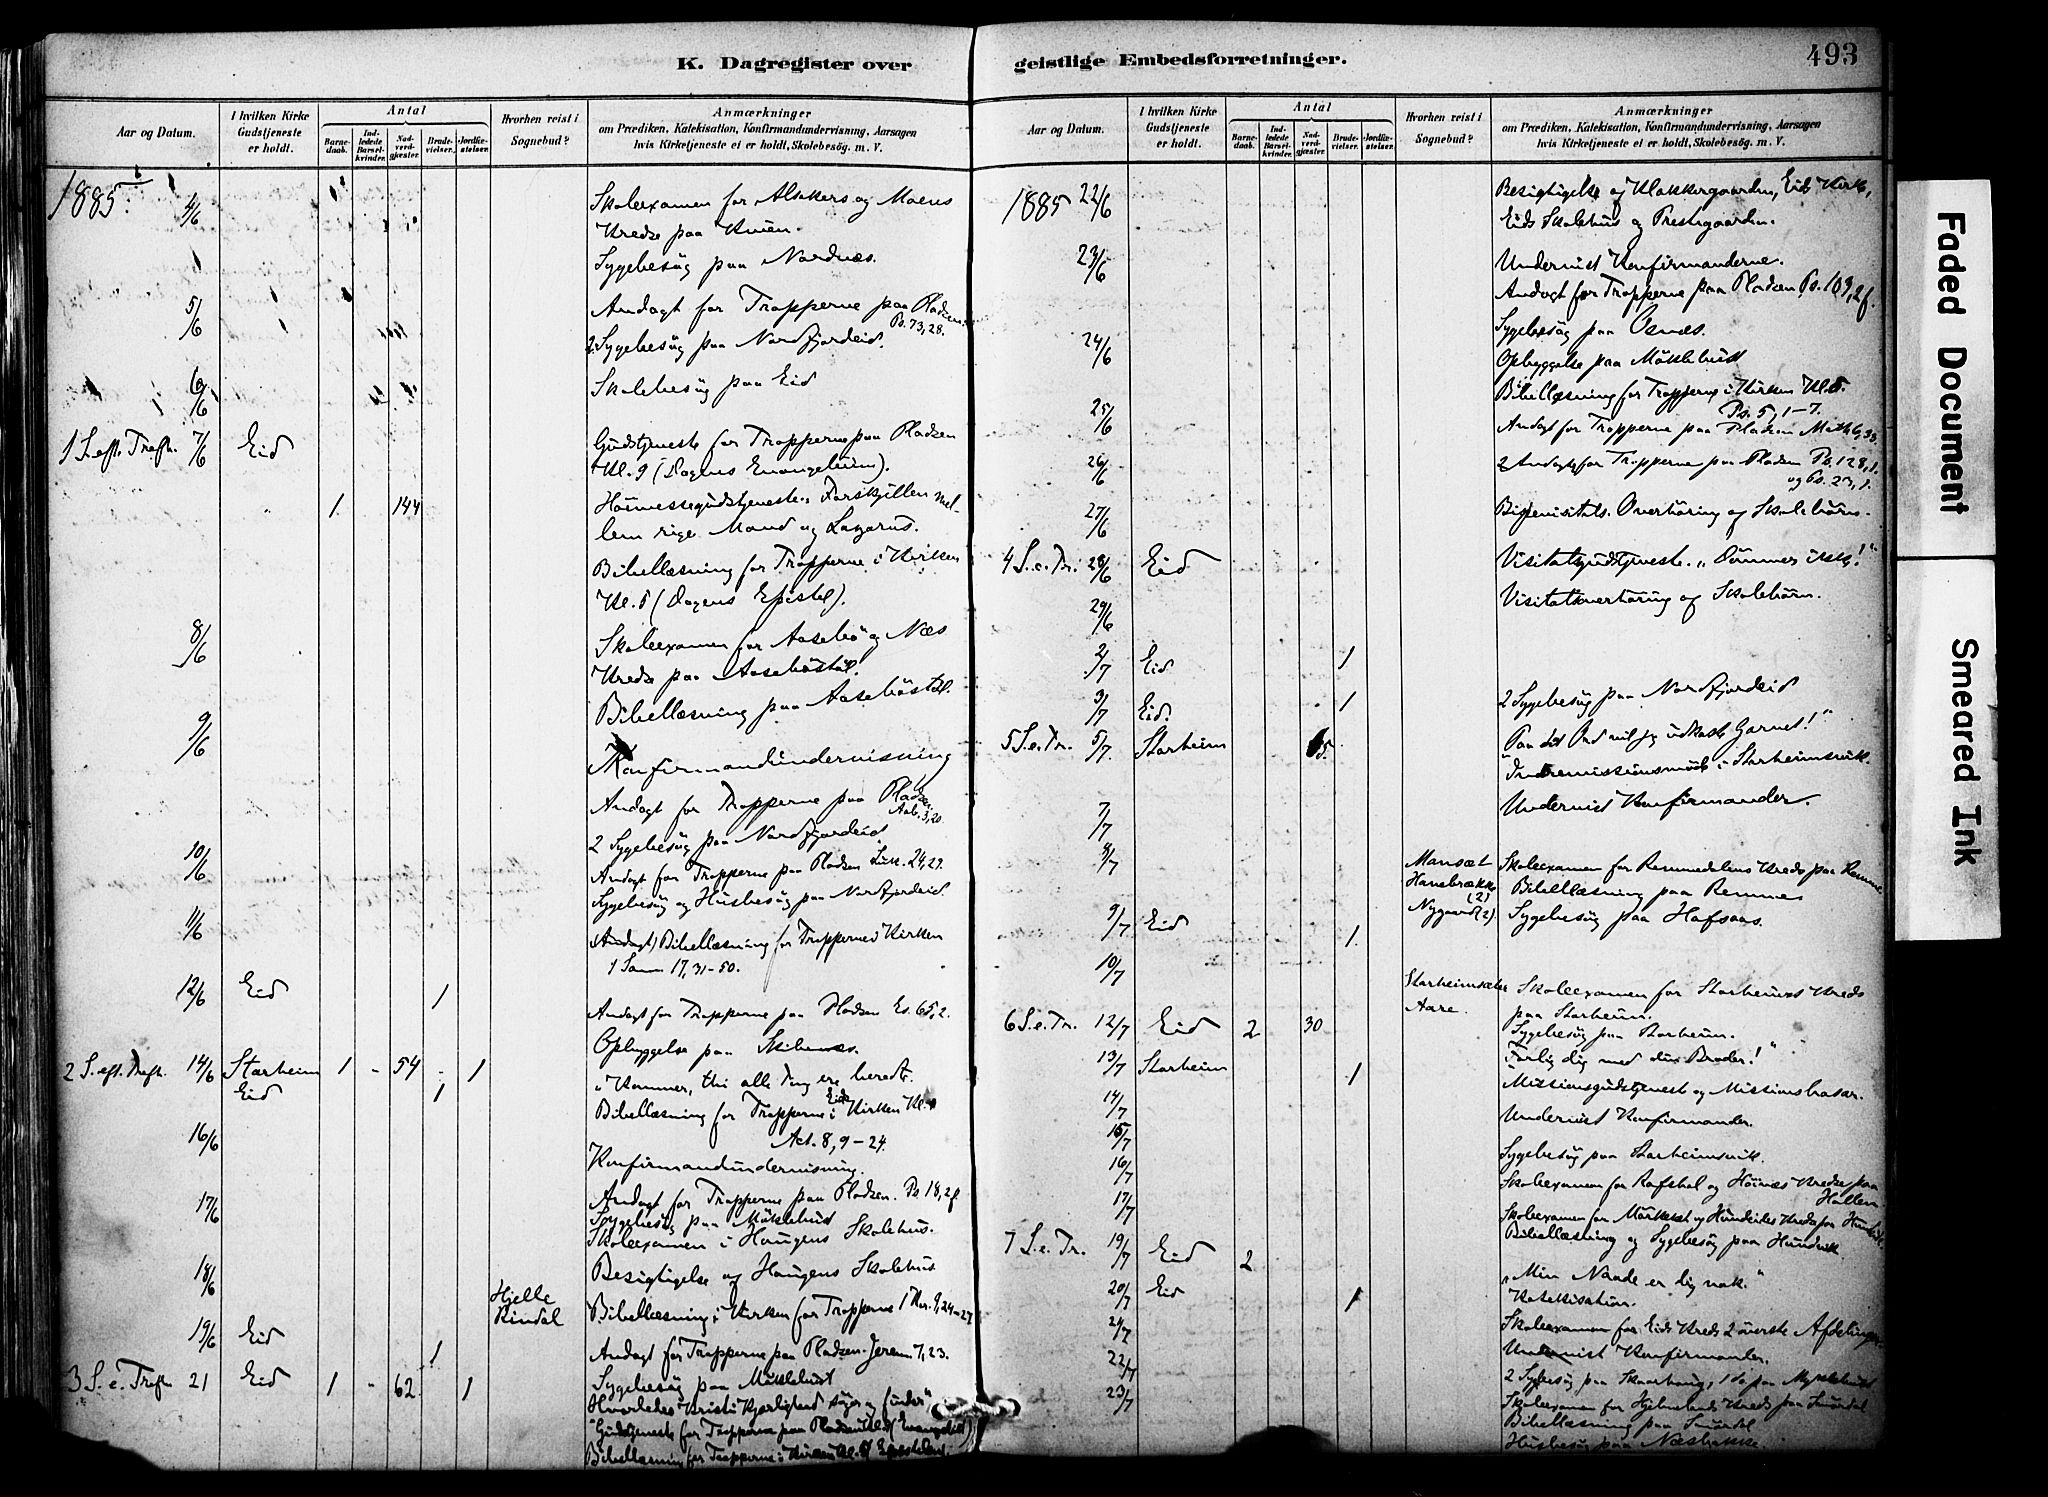 K. Dagregister over geistlige Embedsforretninger.
493
Aar og Datum.
I hvilken Kirke Gudstjeneste er holdt.
Antal
Barnedaab.
Indledede Barselkvinder.
Nadverdgjæster.
Brudevielser.
Jordfæstelser.
Hvorhen reist i Sognebud?
Anmærkninger
om Prædiken, Katekisation, Konfirmandundervisning, Aarsagen
hvis Kirketjeneste ei er holdt, Skolebesøg. m. V.
1885. 4/6 Skoleexamen for Alsakers og Moens
Kreds paa
Sygebesøg paa Nordnæs.
5/6 Andagt for Tropperne paa Pladsen.
Ps. 73, 28.
2 Sygebesøg paa Nordfjordeid.
6/6 Skolebesøg paa Eid
1 S. eft. Trefh. 7/6 Eid Gudstjeneste for Tropperne paa Pladsen
Kl. 9 (Dagens Evangelium).
1. 144 Høimessegudstjeneste. Forskjellen mel-
lem rige Mand og Lazarus.
Bibellæsning for Tropperne i Kirken
Kl. 5 (Dagens Epistel).
8/6 Skoleexamen for Aasebø og Næs
Kreds paa Aasebøstøl.
Bibellæsning paa Aasebøstøl.
9/6 Konfirmandundervisning
Andagt for Tropperne paa Pladsen
Aab. 3, 20.
2 Sygebesøg paa Nordfjordeid
10/6 Andagt for Tropperne paa Pladsen Luk. 24, 29.
Sygebesøg og Husbesøg paa Nordfjordeid.
11/6 (Andagt) Bibellæsning for Tropperne i Kirken
1 Sam 17, 31-50.
12/6 Eid 1
Andagt for Tropperne paa Pladsen Es. 65, 2.
Opbyggelse paa
2 S. eft. Trefh. 14/6 Starheim 1 - 54 - 1 "Kommer, thi alle Ting ere beredt.
Eid 1 Bibellæsning for Tropperne i Eids Kirken Kl.
Act. 8, 9-24.
16/6 Konfirmandundervisning.
17/6 Andagt for Tropperne paa Pladsen. Ps 18, 2f
Sygebesøg paa Møklebust
Skoleexamen i Haugens Skolehus.
18/6 Besigtigelse af Haugens Skolehus
Hjelle
Rindal
Bibellæsning i Kirken for Tropperne 1 Kor. 9, 24-27
19/6 Eid 1 Andagt for Tropperne paa Pladsen. Jerem 7, 23.
3 S. e. Trefh 21 Eid 1 - 62. 1 Sygebesøg paa Møklebust
Hvorledes Kristi Kjærlighed søger og finder",
Gudstjeneste for Tropperne paa Pladsen Kl. 9 (Evangeliet)
Bibellæsning for Tropperne i Kirken Kl. 5
Aar og Datum.
I hvilken Kirke Gudstjeneste er holdt.
Antal
Barnedaab.
Indledede Barselkvinder.
Nadverdgjæster.
Brudevielser.
Jordfæstelser.
Hvorhen reist i Sognebud?
Anmærkninger
om Prædiken, Katekisation, Konfirmandundervisning, Aarsagen
hvis Kirketjeneste ei er holdt, Skolebesøg. m. V.
1885 22/6 Besigtigelse af Klokkergaarden, Eids Kirke,
Eids Skolehus og Prestegaarden.
23/6 Undervist Konfirmanderne.
Andagt for Tropperne paa Pladsen Ps. 103, 2f.
Sygebesøg paa Osnæs.
24/6 Opbyggelse paa Møklebust
Bibellæsning for Tropperne i Kirken Kl. 5.
Ps. 5, 1-7.
25/6 Andagt for Tropperne paa Pladsen Math 6, 33.
26/6 2 Andagt for Tropperne paa Pladsen Ps. 128, 1.
og Ps. 23, 1.
27/6 Bispevisitats. Overhøring af Skolebørn.
4 S. e. Tr. 28/6 Eid Visitatsgudstjeneste. "Dømmer ikke!"
29/6 Visitatsoverhøring af Skolebørn.
2/7 Eid 1
3/7 Eid. 1 2 Sygebesøg paa Nordfjordeid
5 S. e. Tr. 5/7. Starheim "Paa dit Ord vil jeg udkaste Garnet!"
Indremissionsmøde i Starheimsvik.
7/7 Undervist Konfirmander.
8/7 Mansæt
Hanebrække
(2)
Nygaard (2)
Skoleexamen for Remmedalens Kreds paa Remme
Bibellæsning paa Remme
9/7 Eid 1. Sygebesøg paa Hafsaas.
10/7 Starheimsæter
Aare.
Skoleexamen for Starheims Kreds
paa Starheim.
Sygebesøg paa Starheim.
6 S. e. Tr. 12/7 Eid 2 30 "Forlig dig med din Broder!"
13/7 Starheim 1 Missionsgudstjeneste og Missionsbasar.
14/7 Undervist Konfirmander.
15/7 Sygebesøg paa Starheimsvik.
16/7 Skoleexamen for Rafstal og Høinæs Kreds paa
Hollen
17/7 Skoleexamen for og Hundeides Kreds paa Hundeik
Bibellæsning og Sygebesøg paa Hundvik
7 S. e. Tr. 19/7 Eid 2 "Min Naade er dig nok."
Katekisation.
20/7 Eid 1
Skoleexamen for Eids Kreds 2 øverste Afdelinger
Undervist Konfirmander.
22/7 2 Sygebesøg paa 1 do paa Myklebust
23/7 Skoleexamen for Hjelmelands Kreds paa Smørdal
Bibellæsning paa Smørdal
Husbesøg paa Næsbakke.
Faded Document
Smeared Ink